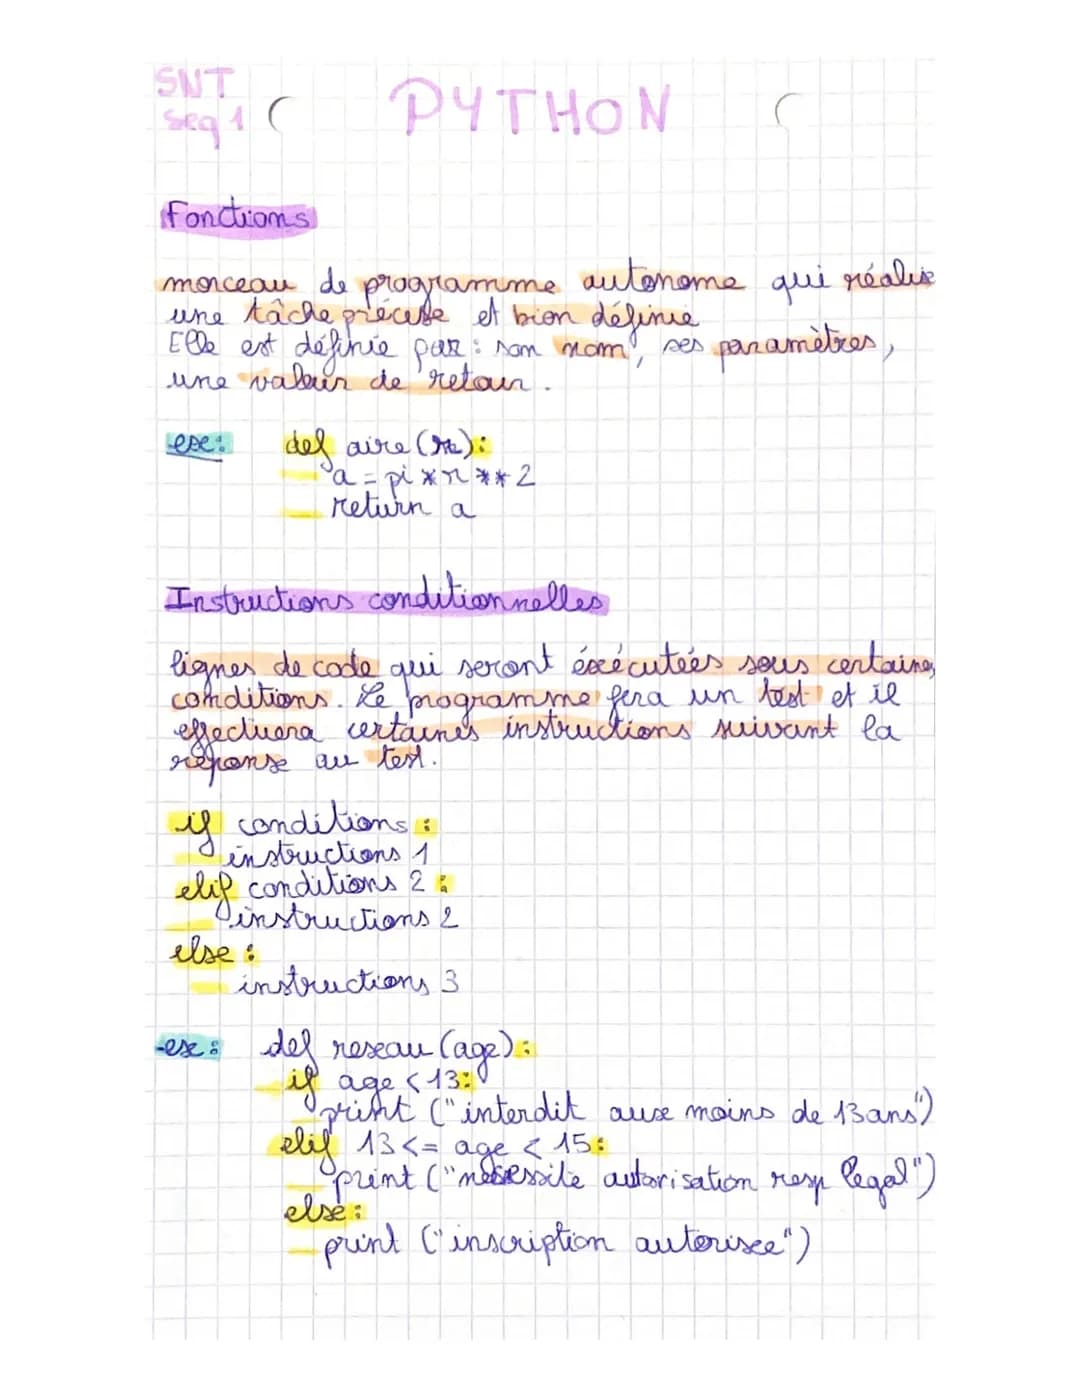 SNT
Seq 1
PYTHON
Fonctions
morceau de programme autonome qui réalise
une tâche précise et bien définie
Elle est définie par : son nom, ses paramètres,
une valeur de retour.
ex:
def aire (r):
a = pi * r ** 2
return a
Instructions conditionnelles
lignes de code qui seront éxécutées sous certaines
conditions. Le programme fera un test et il
effectuera certaines instructions suivant la
réponse au test.
if conditions :
instructions 1
elif conditions 2 :
instructions 2
else :
instructions 3
ex: def reseau (age) :
if age < 13:
print ("interdit aux moins de 13 ans")
elif 13 <= age < 15:
print ("nécessite autorisation resp legal")
else:
print ("inscription autorisee")